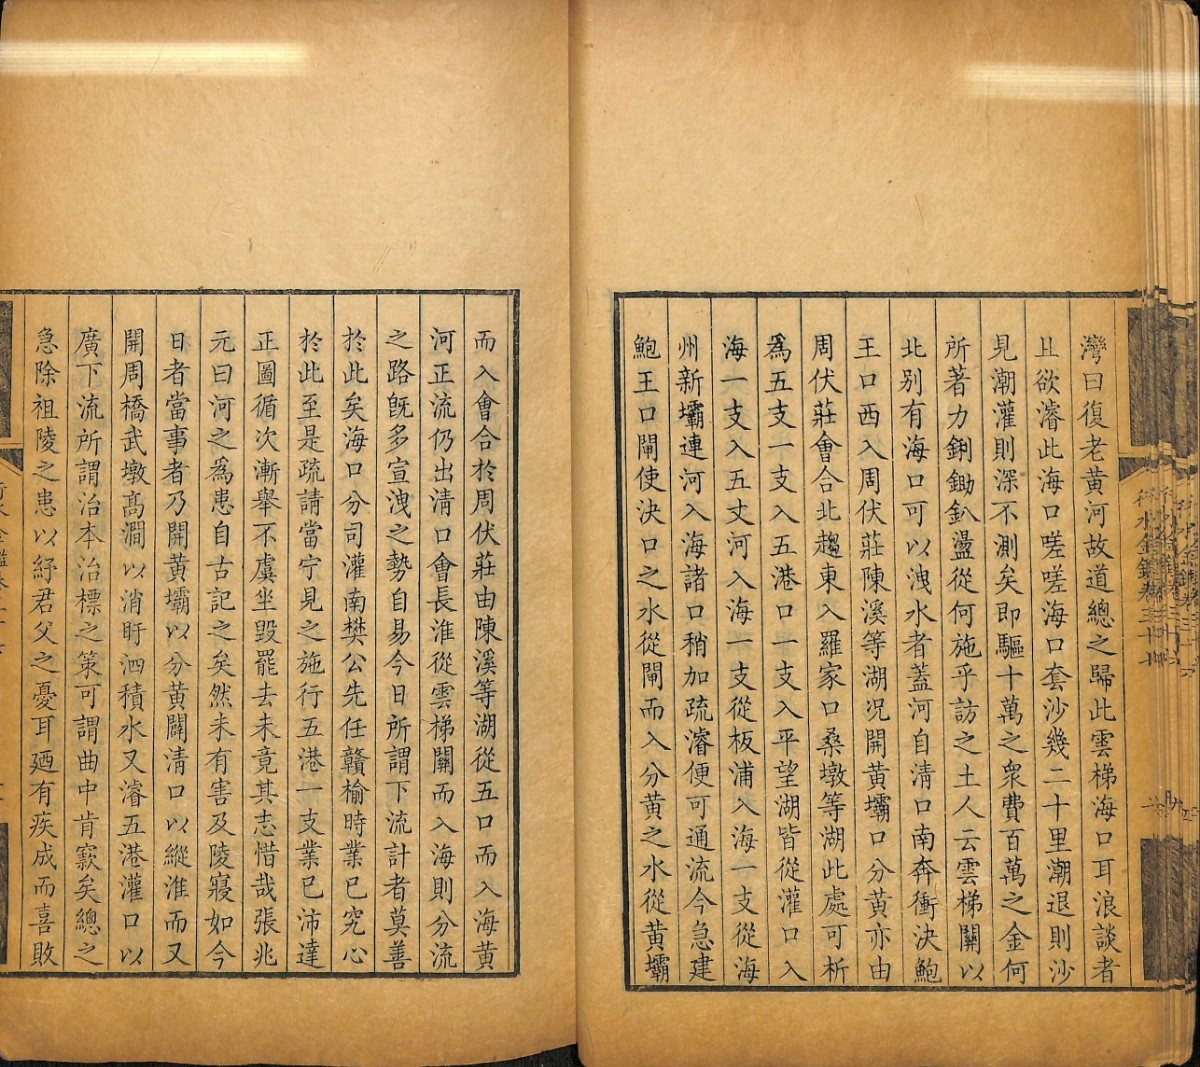 灣曰復老黃河故道總之歸此雲梯海口耳浪談者
且欲濬此海口嗟嗟海口套沙幾二十里潮退則沙
見潮灌則深不測矣即驅十萬之衆費百萬之金何
所著力鍘鋤釟盪從何施乎訪之土人云雲梯關以
北別有海口可以洩水者蓋河自清口南奔衝決鮑
王口西入周伏莊陳溪等湖況開黃壩口分黃亦由
周伏莊會合北趨東入羅家口桑墩等湖此處可析
為五支一支入五港口一支入平望湖皆從灌口入
海一支入五丈河入海一支從板浦入海一支從海
州新壩連河入海諸口稍加疏濬便可通流今急建
鮑王口閘使決口之水從閘而入分黃之水從黃壩
而入會合於周伏莊由陳溪等湖從五口而入海黃
河正流仍出清口會長淮從雲梯關而入海則分流
之路旣多宣洩之勢自易今日所謂下流計者莫善
於此矣海口分司灌南樊公先任贛榆時業已究心
於此至是疏請當宁見之施行五港一支業已沛達
正圖循次漸舉不虞坐毀罷去未竟其志惜哉張兆
元曰河之為患自古記之矣然未有害及陵寢如今
日者當事者乃開黃壩以分黃闢清口以縱淮而又
開周橋武墩高澗以消盱泗積水又濬五港灌口以
廣下流所謂治本治標之策可謂曲中肯窾矣總之
急除祖陵之患以紓君父之憂耳廼有疾成而喜敗